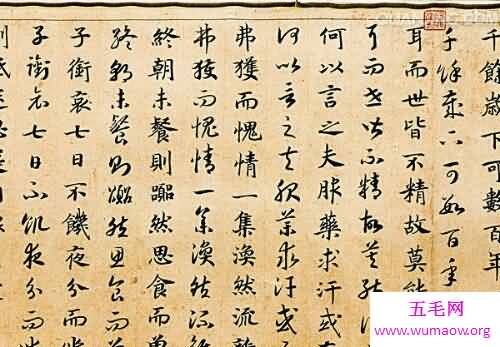 千餘歲下可數百年
千餘歲下可數百年
耳而世皆不精故莫能
耳而世皆不精故莫能
何以言之夫服藥求汗或有
何以言之夫服藥求汗或有
弗獲而愧情一集渙然流離
弗獲而愧情一集渙然流離
終朝未餐則囂然思食而曾
終朝未餐則囂然思食而曾
子銜哀七日不饑夜分而坐
子銜哀七日不饑夜分而坐
五毛网
www.wumaow.org